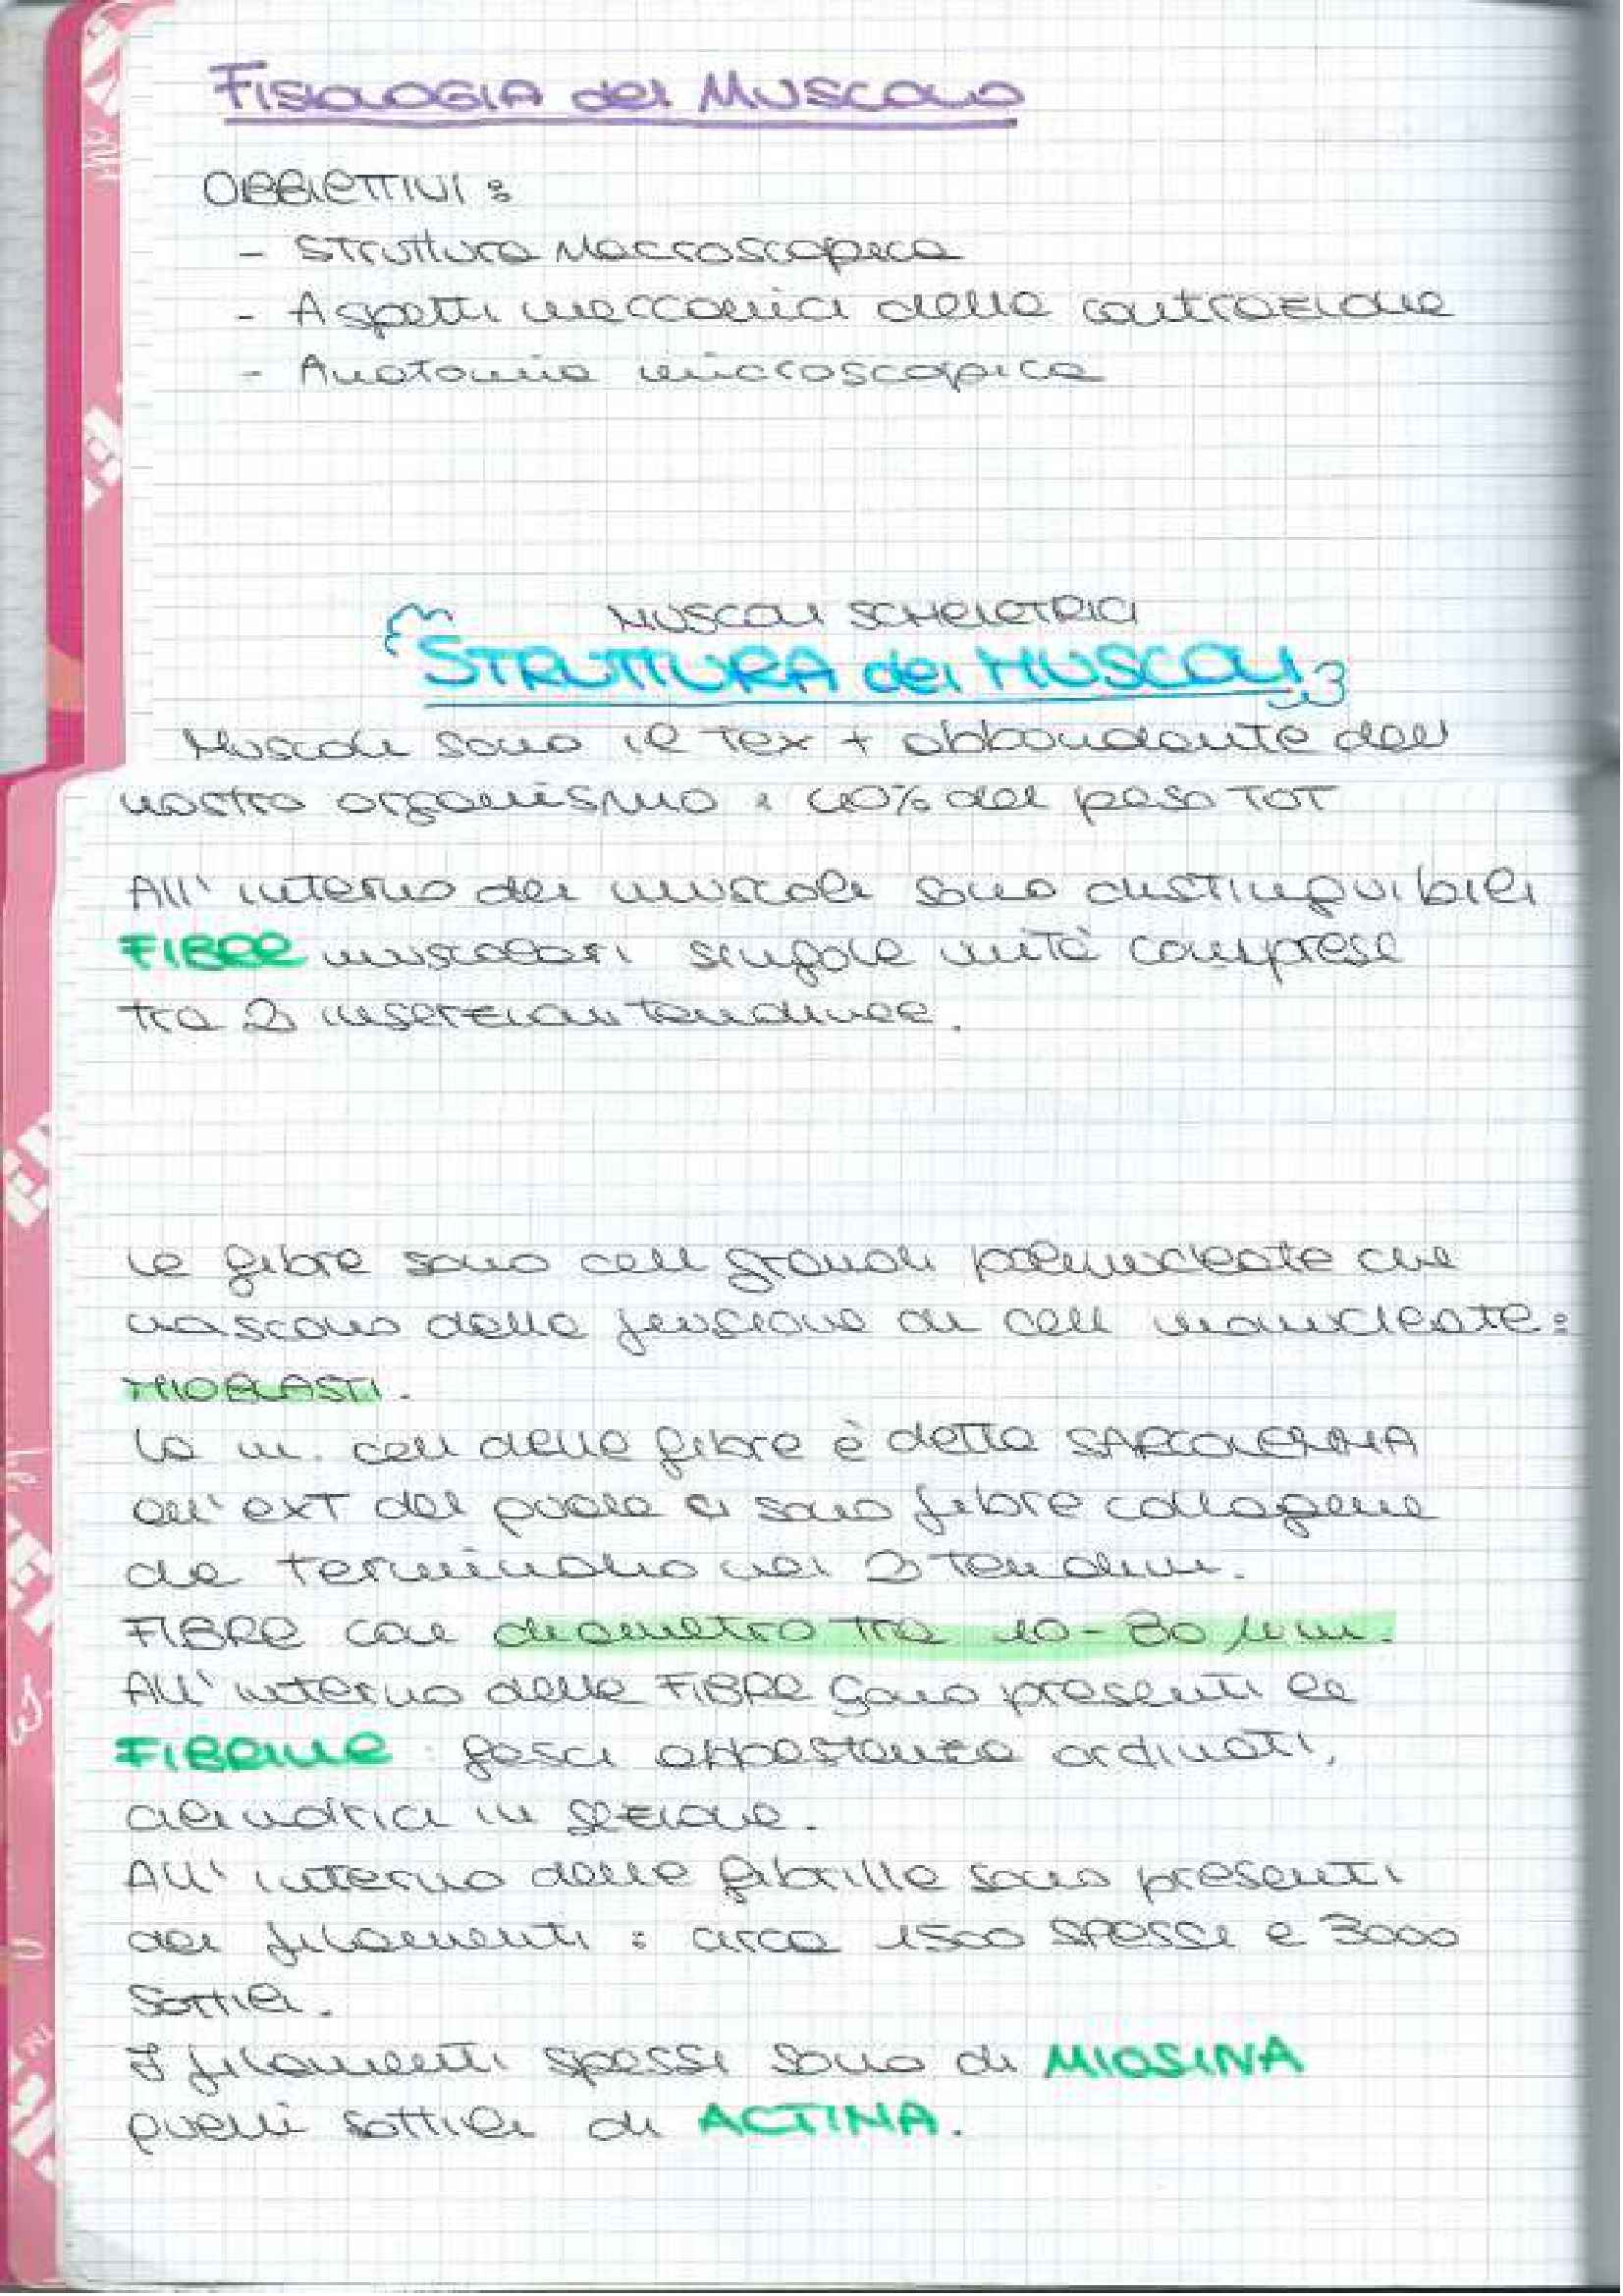 FISIOLOGIA del MUSCOLO
OBBIETTIVI :
- Struttura Macroscopica
- Aspetti meccanici della contrazione
- Anatomia microscopica
MUSCOLI SCHELETRICI
STRUTTURA dei MUSCOLI
Muscoli sono il Tex + abbondante del
nostro organismo : 40% del peso TOT
All' interno dei muscoli sono distinguibili
FIBRE muscolari singole unità comprese
tra 2 inserzioni tendinee.
Le fibre sono cell grandi polinucleate che
nascono dalla fusione di cell mononucleate :
MIOBLASTI.
La m. cell delle fibre è detta SARCOLEMMA
all' ext del quale ci sono fibre collagene
che terminano nei 2 Tendini.
FIBRE con diametro tra 10-80 µm.
All' interno delle FIBRE sono presenti le
FIBRILLE : fasci abbastanza ordinati,
cilindrici in sezione.
All' interno delle fibrille sono presenti
dei filamenti : circa 1500 SPESSI e 3000
SOTTILI.
I filamenti spessi sono di MIOSINA
quelli sottili di ACTINA.